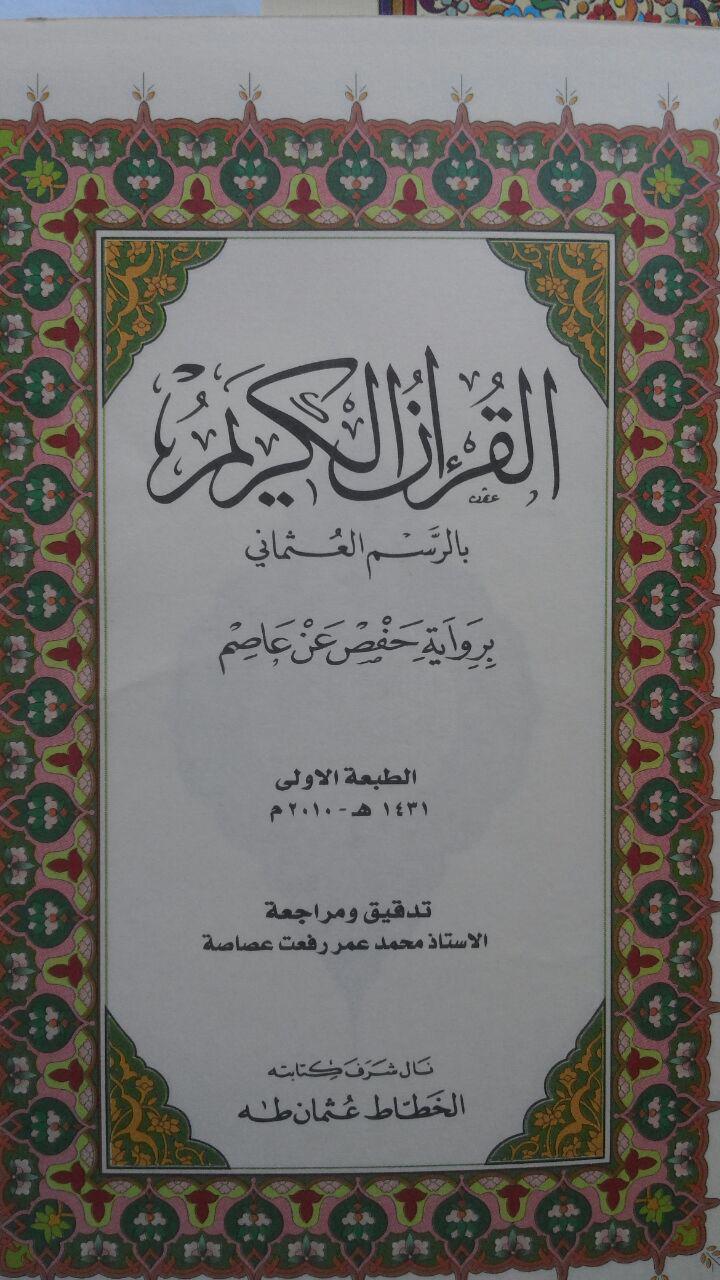 القُرْءانُ الْكَرِيمُ
بالرَّسْمِ العُثماني
بِرِوَايَةِ حَفْصٍ عَنْ عَاصِمٍ
الطبعة الاولى
١٤٣١ هـ - ٢٠١٠ م
تدقيق ومراجعة
الاستاذ محمد عمر رفعت عصاصة
نَال شَرَفَ كِتابته
الخَطّاط عُثمان طه